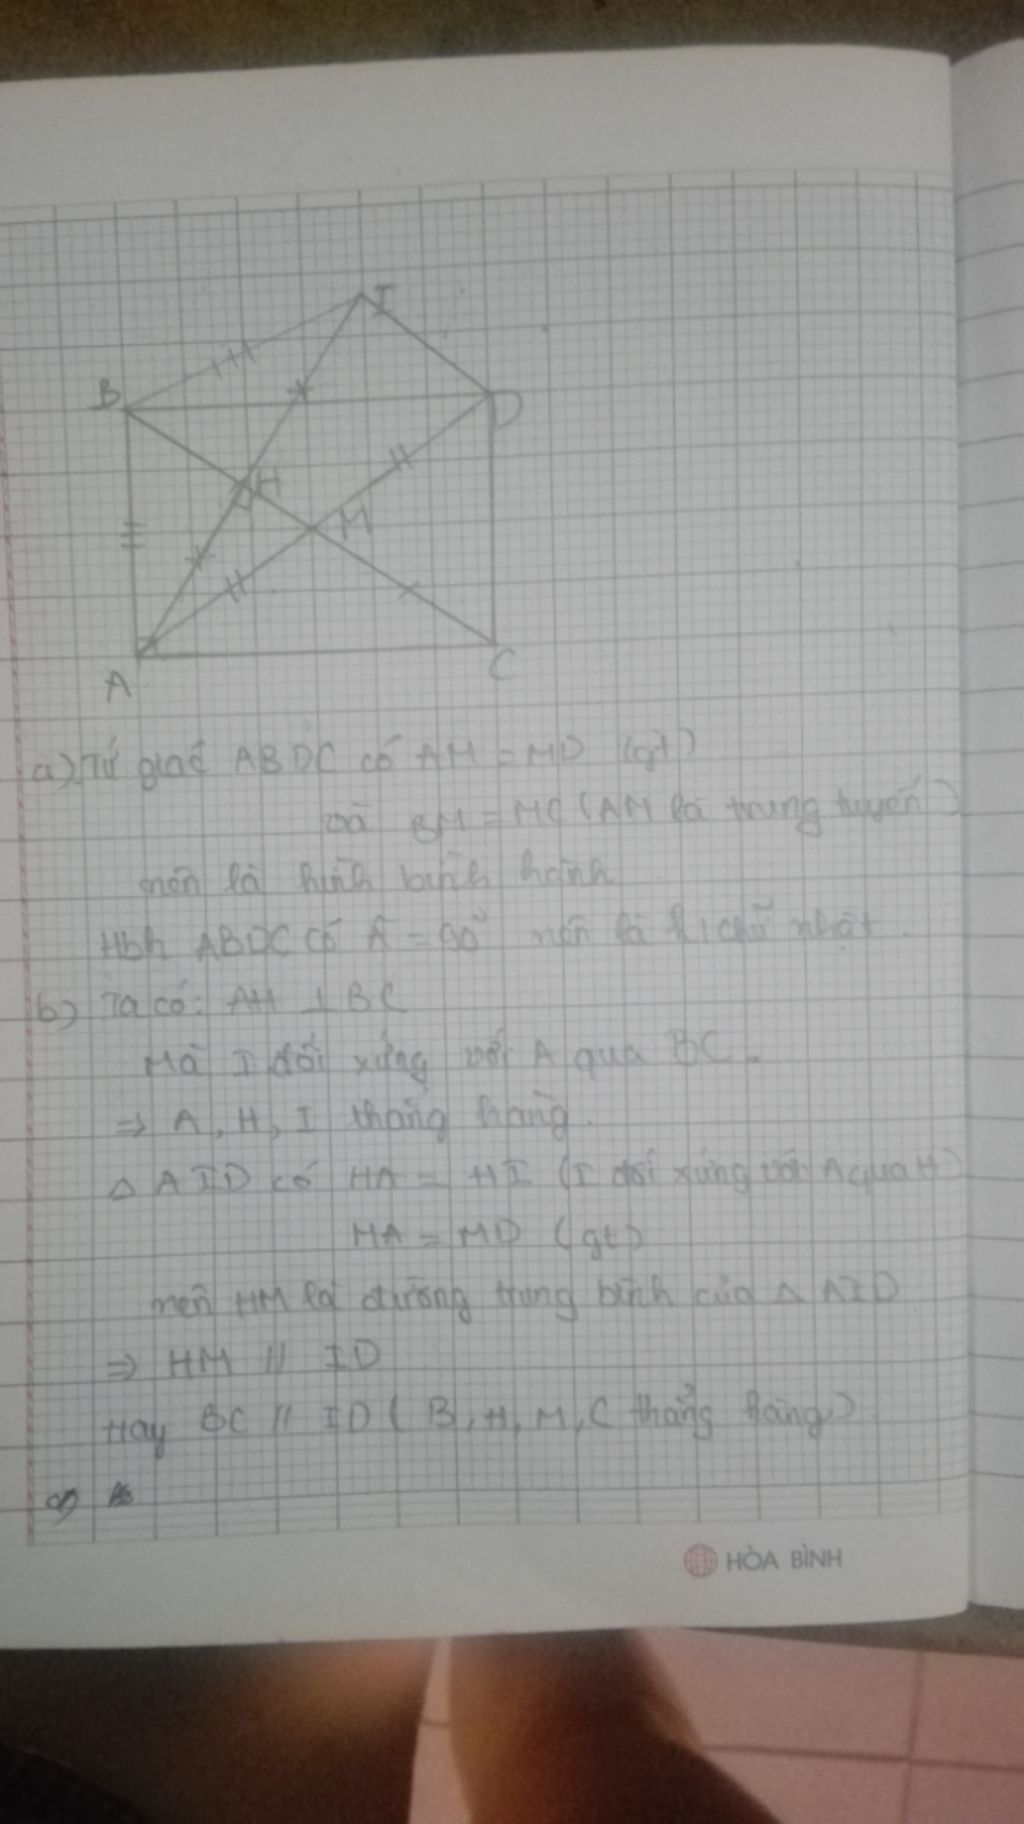 I
B
D
H
M
A
C
a) Tứ giác ABDC có AM = MD (gt)
và BM = MC (AM là trung tuyến)
nên là hình bình hành
Hbh ABDC có Â = 90° nên là h.chữ nhật.
b) Ta có: AH ⊥ BC
Mà I đối xứng với A qua BC.
⇒ A, H, I thẳng hàng.
△ AID có HA = HI (I đối xứng với A qua H)
MA = MD (gt)
nên HM là đường trung bình của △ AID
⇒ HM // ID
Hay BC // ID (B, H, M, C thẳng hàng)
c)
HÒA BÌNH